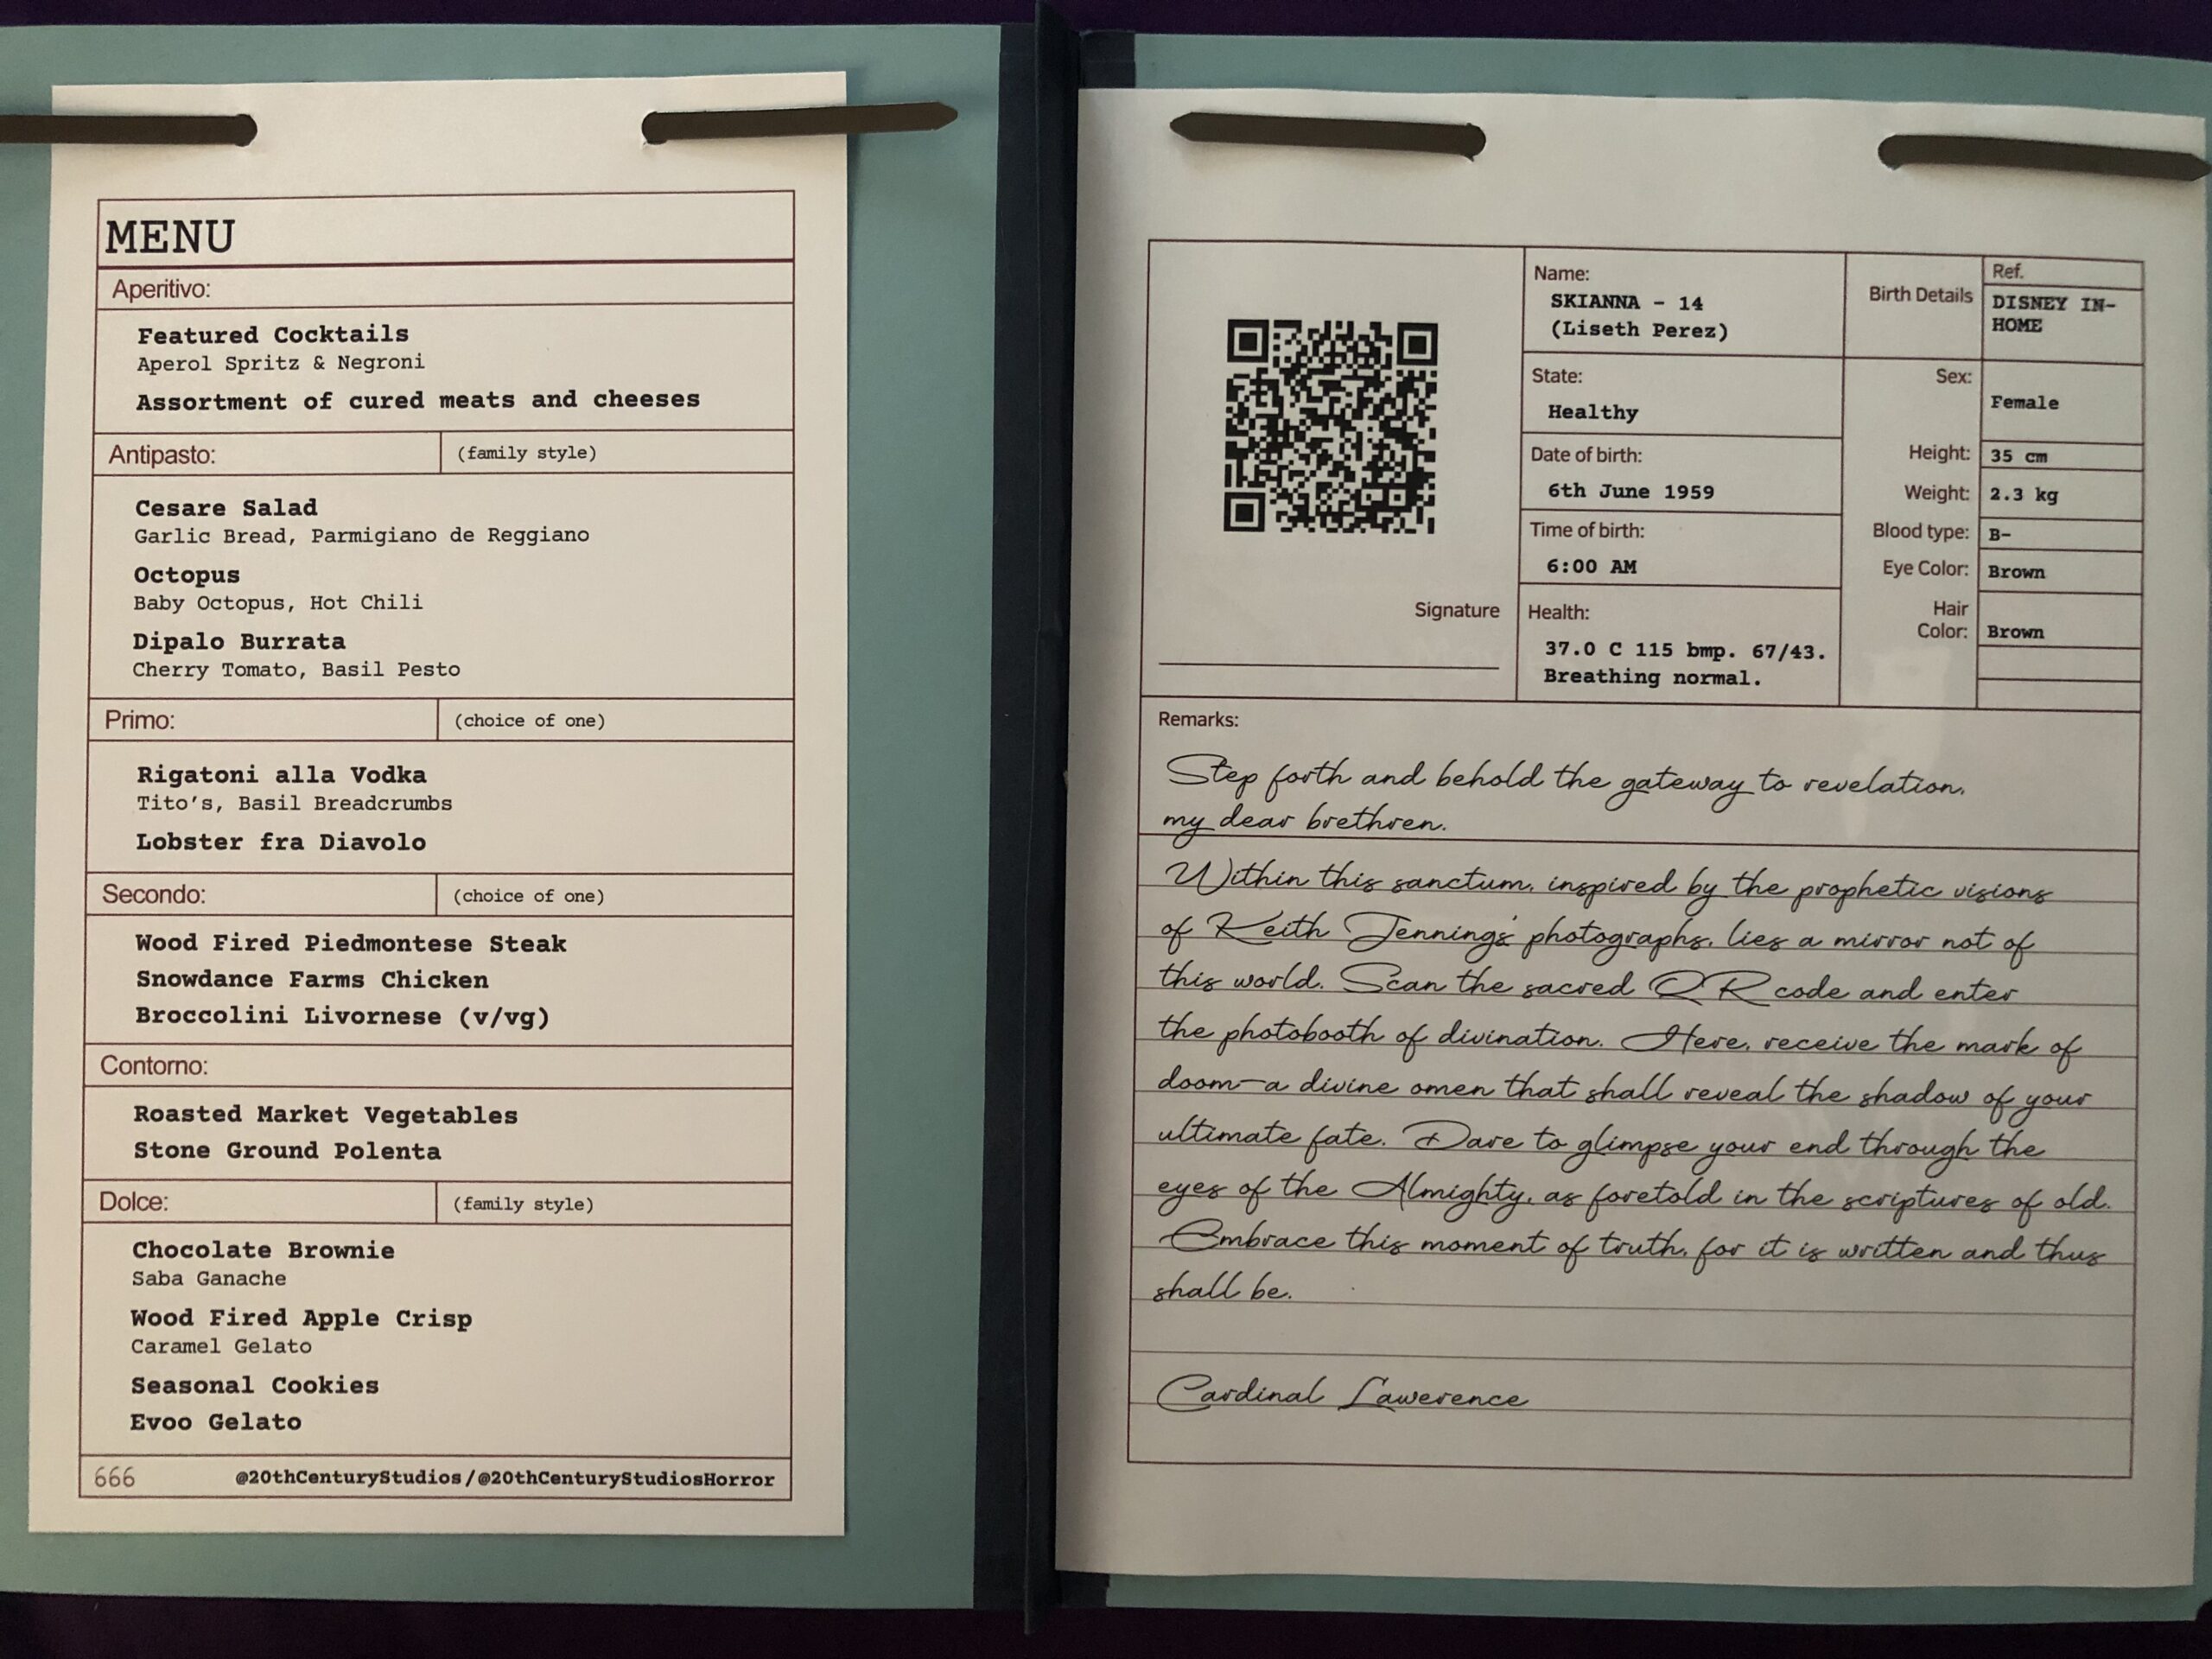 MENU
Aperitivo:
Featured Cocktails
Aperol Spritz & Negroni
Assortment of cured meats and cheeses
Antipasto: (family style)
Cesare Salad
Garlic Bread, Parmigiano de Reggiano
Octopus
Baby Octopus, Hot Chili
Dipalo Burrata
Cherry Tomato, Basil Pesto
Primo: (choice of one)
Rigatoni alla Vodka
Tito's, Basil Breadcrumbs
Lobster fra Diavolo
Secondo: (choice of one)
Wood Fired Piedmontese Steak
Snowdance Farms Chicken
Broccolini Livornese (v/vg)
Contorno:
Roasted Market Vegetables
Stone Ground Polenta
Dolce: (family style)
Chocolate Brownie
Saba Ganache
Wood Fired Apple Crisp
Caramel Gelato
Seasonal Cookies
Evoo Gelato
666 @20thCenturyStudios/@20thCenturyStudiosHorror
Signature
Name:
SKIANNA - 14
(Liseth Perez)
State:
Healthy
Date of birth:
6th June 1959
Time of birth:
6:00 AM
Health:
37.0 C 115 bmp. 67/43.
Breathing normal.
Birth Details
Ref.
DISNEY IN-
HOME
Sex:
Female
Height: 35 cm
Weight: 2.3 kg
Blood type: B-
Eye Color: Brown
Hair
Color: Brown
Remarks:
Step forth and behold the gateway to revelation,
my dear brethren.
Within this sanctum, inspired by the prophetic visions
of Keith Jennings' photographs, lies a mirror not of
this world. Scan the sacred QR code and enter
the photobooth of divination. Here, receive the mark of
doom—a divine omen that shall reveal the shadow of your
ultimate fate. Dare to glimpse your end through the
eyes of the Almighty, as foretold in the scriptures of old.
Embrace this moment of truth, for it is written and thus
shall be.
Cardinal Lawerence